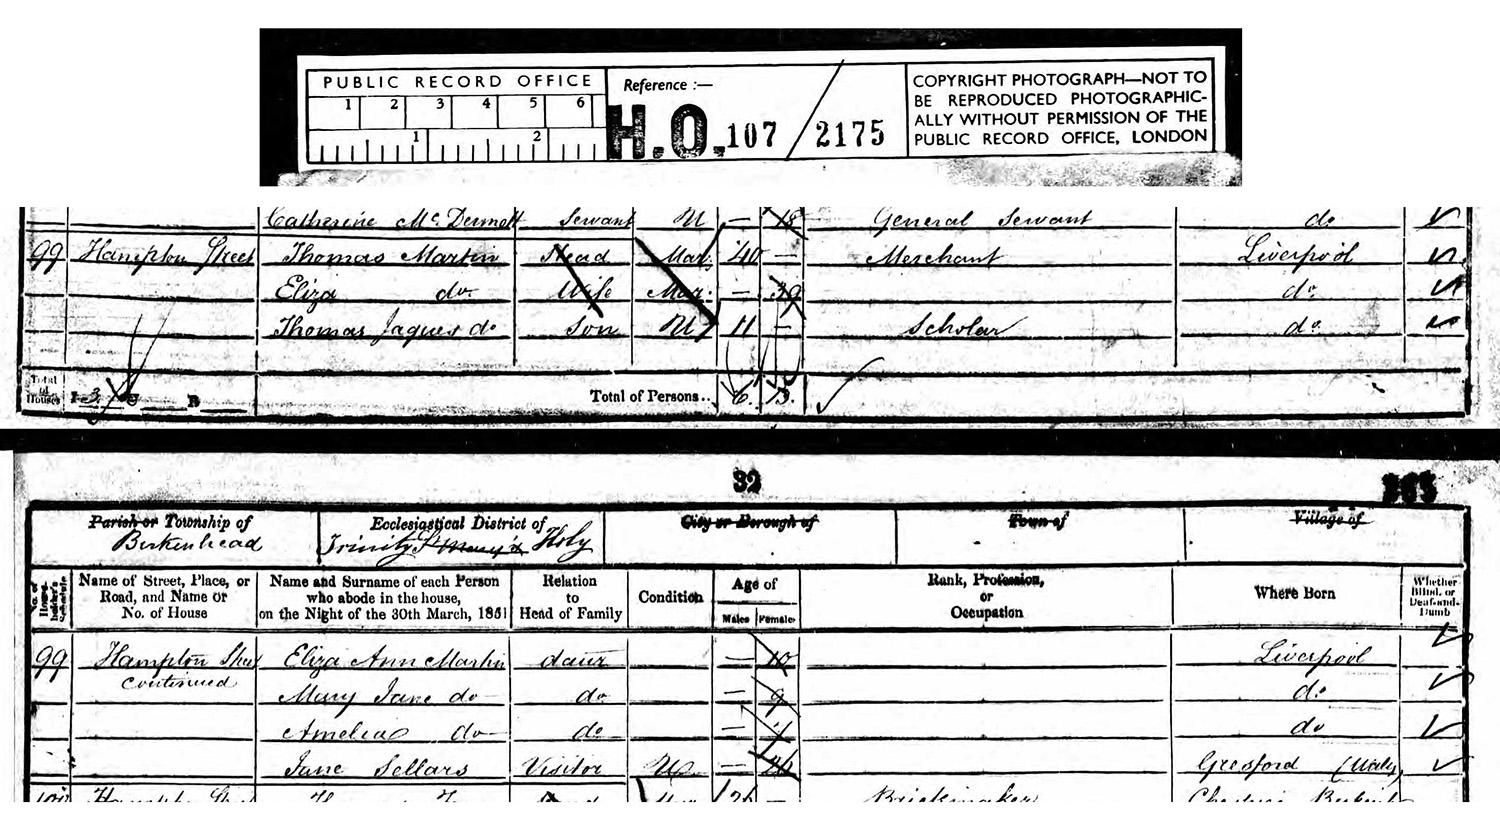 PUBLIC RECORD OFFICE
1 2 3 4 5 6
1 2
Reference :—
H.O. 107 / 2175
COPYRIGHT PHOTOGRAPH—NOT TO
BE REPRODUCED PHOTOGRAPHIC-
ALLY WITHOUT PERMISSION OF THE
PUBLIC RECORD OFFICE, LONDON
Catherine McDermott Servant U — 18 General Servant do
99 Hampton Street Thomas Martin Head Mar 40 — Merchant Liverpool
Eliza do Wife Mar — 39 do
Thomas Jaques do Son U 11 — Scholar do
Total of Houses I 3 U B Total of Persons.. 6
32
Parish or Township of
Birkenhead
Ecclesiastical District of
Trinity St Mary's Holy
City or Borough of
Town of
Village of
No. of House-holder's Schedule
Name of Street, Place, or Road, and Name or No. of House
Name and Surname of each Person who abode in the house, on the Night of the 30th March, 1851
Relation to Head of Family
Condition
Age of
Males Females
Rank, Profession, or Occupation
Where Born
Whether Blind, or Deaf-and-Dumb
99 Hampton Street Eliza Ann Martin daur — 10 Liverpool
continued Mary Jane do do — 9 do
Amelia do do — do
Jane Sellars Visitor U — Gresford (Wales)
Brickmaker Cheshire